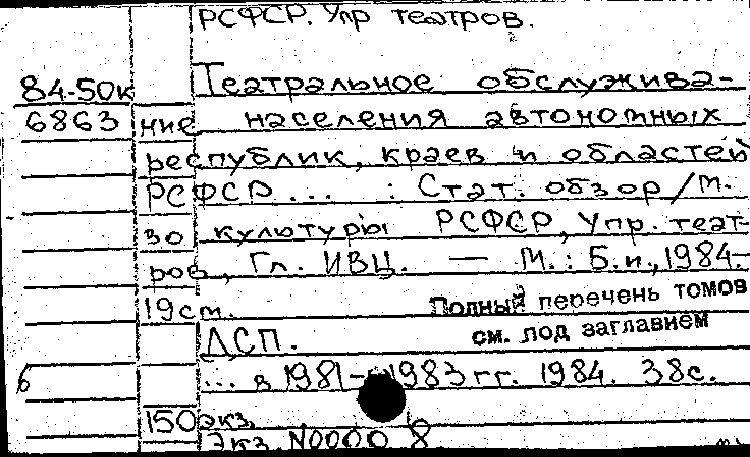 РСФСР. Упр театров.
84-50к Театральное обслужива-
6863 ние населения автономных
республик, краев и областей
РСФСР ... : Стат. обзор / М.
во культуры РСФСР, Упр. теат-
ров, Гл. ИВЦ. — М.: Б.и., 1984.-
19см. Полный перечень томов
ДСП. см. под заглавием
6 ... в 1981-1983 гг. 1984. 38с.
150экз.
Экз. N0000 8